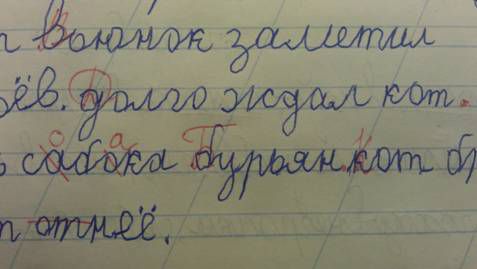 Вьюнок заметил
ёв. долго ждал кот.
сабока бурьян кот
отнеё.